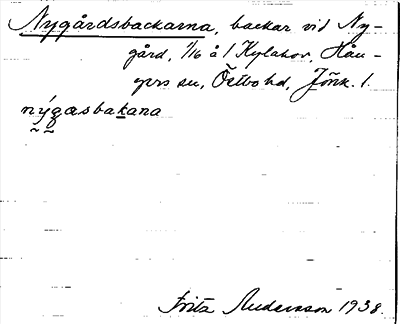 Nygårdsbackarna, backar vid Ny-
gård, 1/16 å 1 Kylahov, Hån-
gers sn, Östbo hd, Jönk. l.
nýgasbakana
Fritz Andersson 1938.